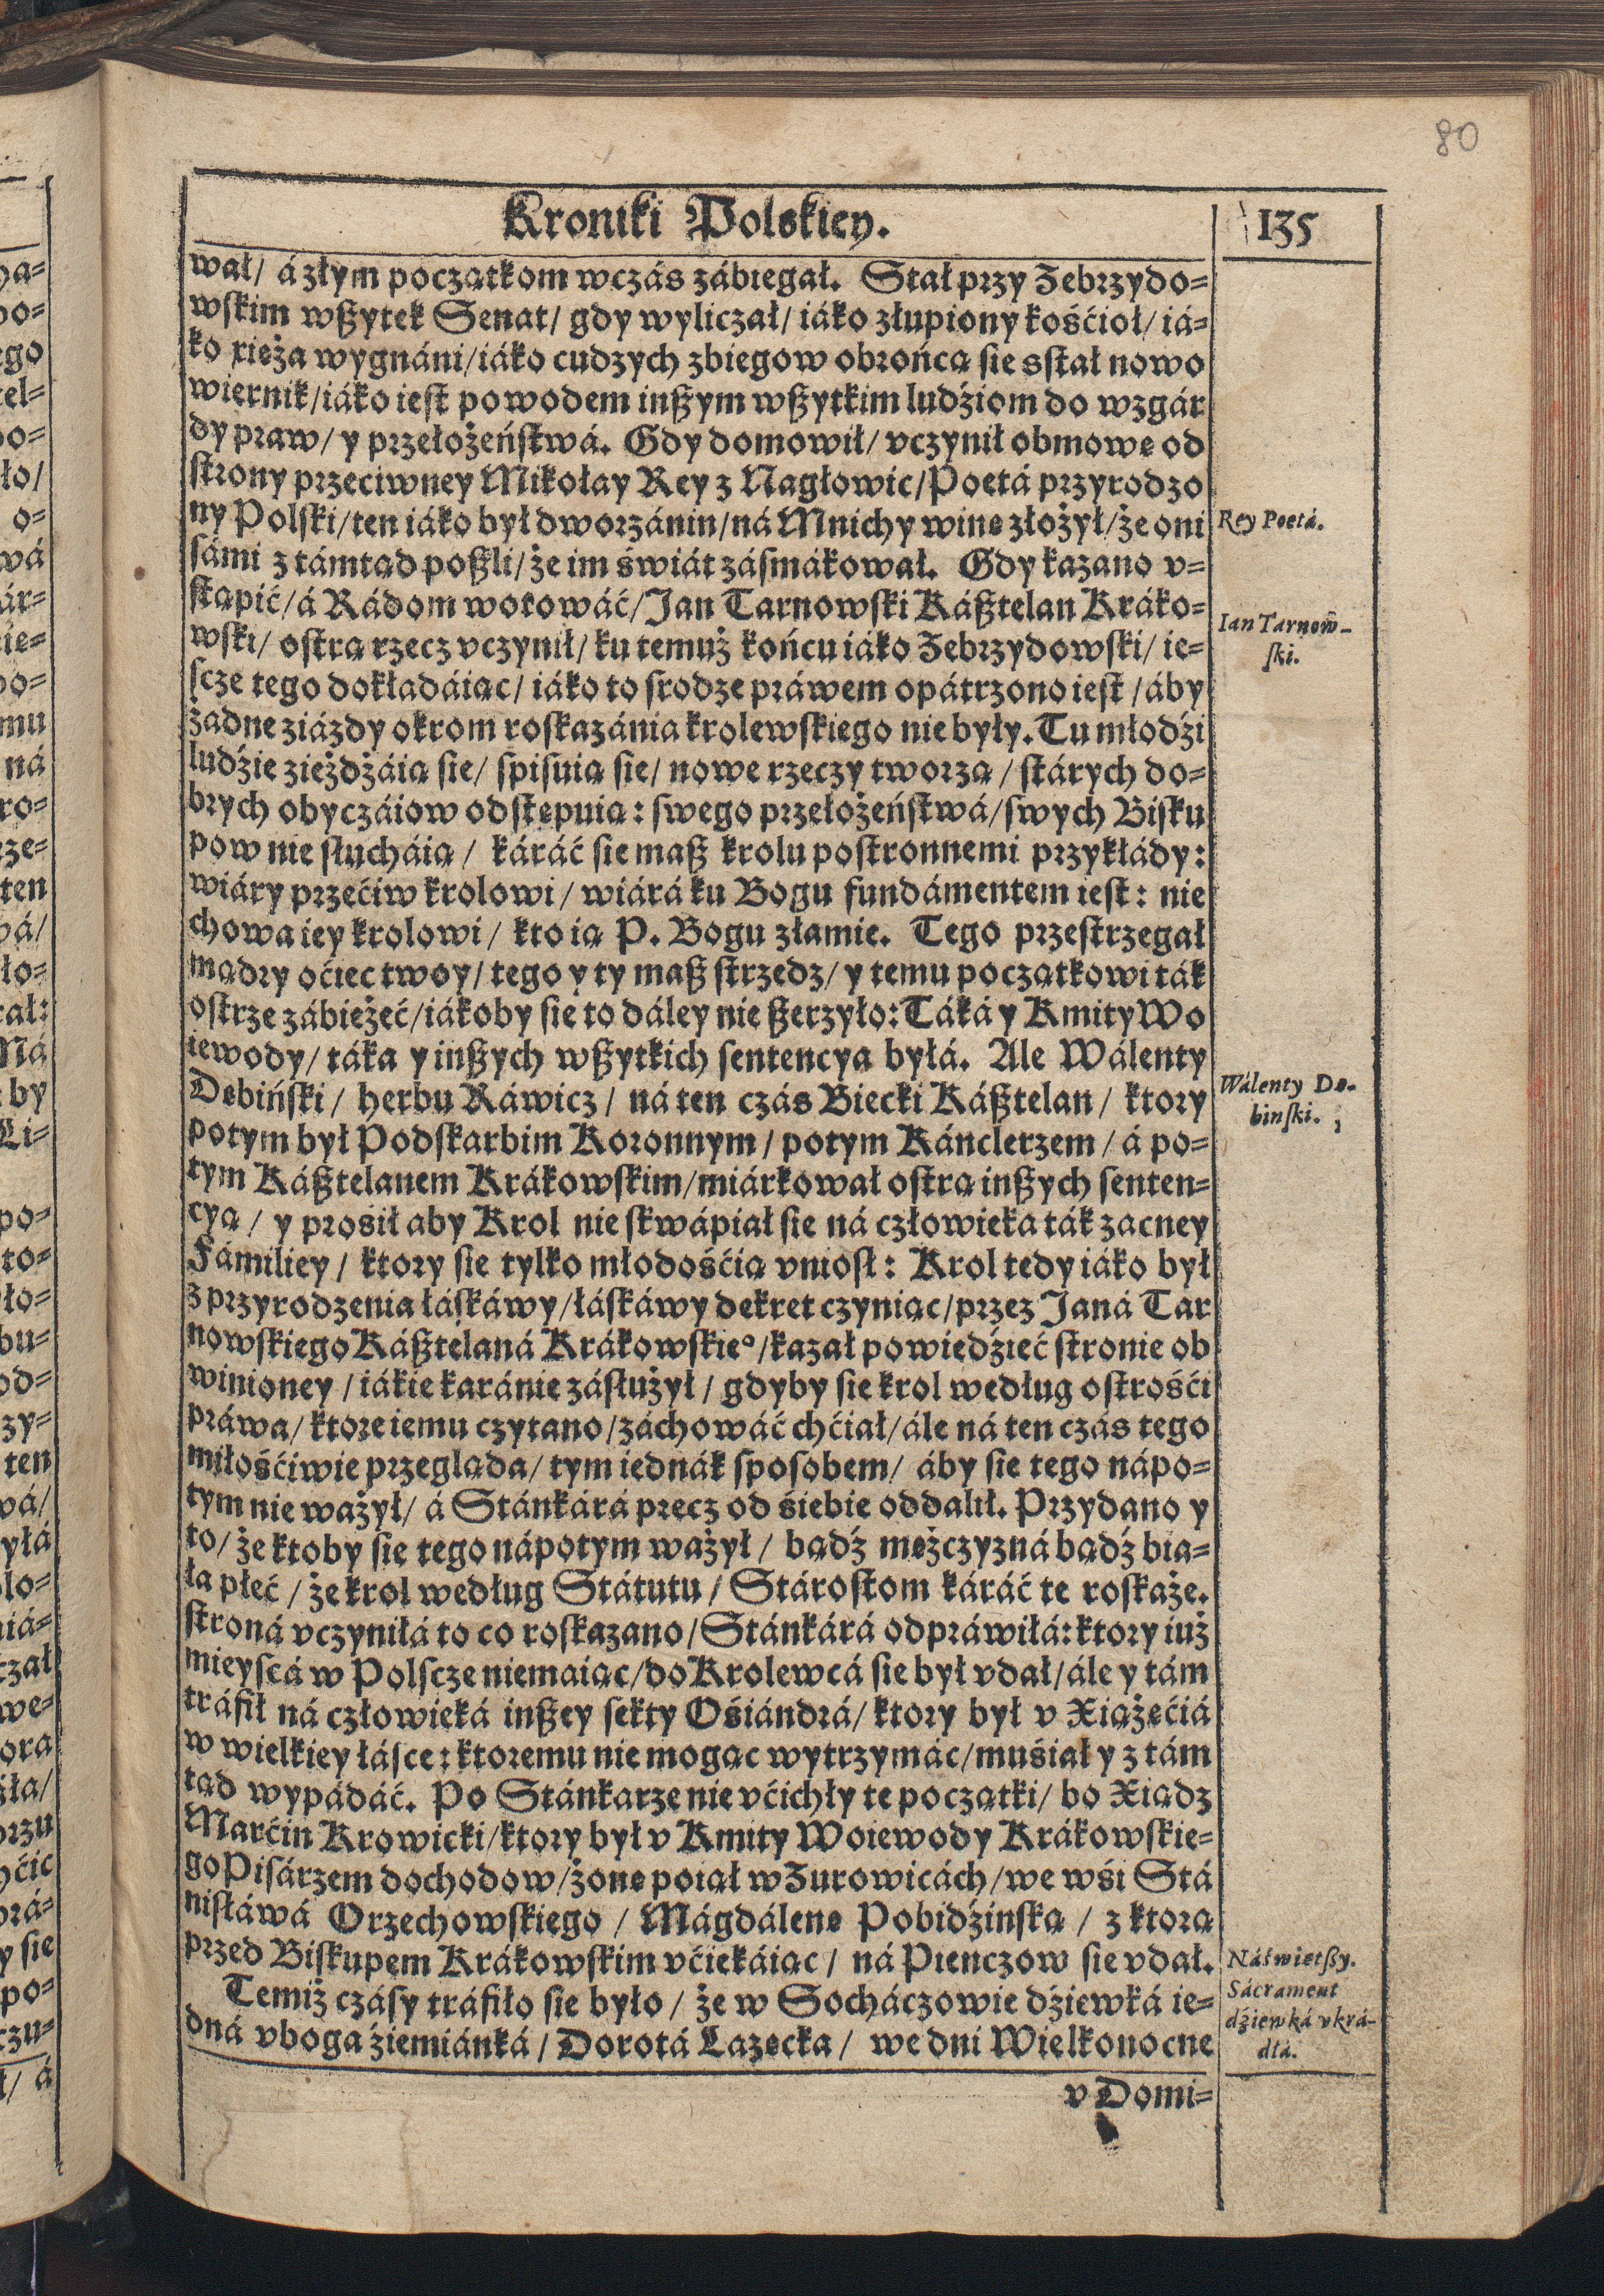 80
Kroniki Polskiey.
135
wał/ á złym początkom wczás zábiegał. Stał przy Zebrzydo=
wskim wszytek Senat/ gdy wyliczał/ iáko złupiony kośćioł/ iá=
ko xięża wygnáni/ iáko cudzych zbiegow obrońcą się sstał nowo
wiernik/ iáko iest powodem inszym wszytkim ludźiom do wzgár
dy praw/ y przełożeństwá. Gdy domowił/ vczynił obmowę od
strony przeciwney Mikołay Rey z Nagłowic/ Poetá przyrodzo
ny Polski/ ten iáko był dworzánin/ ná Mnichy winę złożył/ że oni
Rey Poetá.
sámi z támtąd poszli/ że im świát zásmákował. Gdy kazano v=
stąpić/ á Rádom wotowáć/ Jan Tarnowski Kásztelan Kráko=
Ian Tarnow-
wski/ ostrą rzecz vczynił/ ku temuż końcu iáko Zebrzydowski/ ie=
ski.
scze tego dokłádáiąc/ iáko to srodze práwem opátrzono iest/ áby
żadne ziázdy okrom roskazánia krolewskiego nie były. Tu młodźi
ludźie zieżdżáią się/ spisuią się/ nowe rzeczy tworzą/ stárych do=
brych obyczáiow odstępuią: swego przełożeństwá/ swych Bisku
pow nie słucháią/ káráć się masz krolu postronnemi przykłády:
wiáry przećiw krolowi/ wiárá ku Bogu fundámentem iest: nie
chowa iey krolowi/ kto ią P. Bogu złamie. Tego przestrzegał
mądry oćiec twoy/ tego y ty masz strzedz/ y temu początkowi ták
ostrze zábieżeć/ iákoby się to dáley nie szerzyło: Táká y Kmity Wo
iewody/ táka y inszych wszytkich sentencya byłá. Ale Wálenty
Dębiński/ herbu Ráwicz/ ná ten czás Biecki Kásztelan/ ktory
Wálenty Dę-
potym był Podskarbim Koronnym/ potym Kánclerzem/ á po=
binski.
tym Kásztelanem Krákowskim/ miárkował ostrą inszych senten=
cyą/ y prośił aby Krol nie skwápiał się ná człowieka ták zacney
Fámiliey/ ktory się tylko młodośćią vniosł: Krol tedy iáko był
z przyrodzenia łáskáwy/ łáskáwy dekret czyniąc/ przez Janá Tar
nowskiego Kásztelaná Krákowskieº/ kazał powiedźieć stronie ob
winioney/ iákie karánie zásłużył/ gdyby się krol według ostrośći
práwa/ ktore iemu czytano/ záchowáć chćiał/ ále ná ten czás tego
miłośćiwie przegląda/ tym iednák sposobem/ áby się tego nápo=
tym nie ważył/ á Stánkárá precz od śiebie oddalił. Przydano y
to/ że ktoby się tego nápotym ważył/ bądź mężczyzná bądź bia=
ła płeć/ że krol według Státutu/ Stárostom káráć te roskaże.
stroná vczyniłá to co roskazano/ Stánkárá odpráwiłá: ktory iuż
mieyscá w Polscze niemaiąc/ do Krolewcá się był vdał/ ále y tám
tráfił ná człowieká inszey sekty Ośiándrá/ ktory był v Xiążęćiá
w wielkiey łásce: ktoremu nie mogąc wytrzymác/ muśiał y z tám
tąd wypádáć. Po Stánkarze nie vćichły te początki/ bo Xiądz
Marćin Krowicki/ ktory był v Kmity Woiewody Krákowskie=
go Pisárzem dochodow/ żonę poiął w Zurowicách/ we wśi Stá
nisłáwá Orzechowskiego/ Mágdálenę Pobidźinską/ z ktorą
przed Biskupem Krákowskim vćiekáiąc/ ná Pienczow się vdał.
Náświętszy.
Temiż czásy tráfiło się było/ że w Socháczowie dźiewká ie=
Sácrament
dźiewká vkrá-
dná vboga źiemiánká/ Dorotá Lazęcka/ we dni Wielkonocne
dłá.
v Domi=